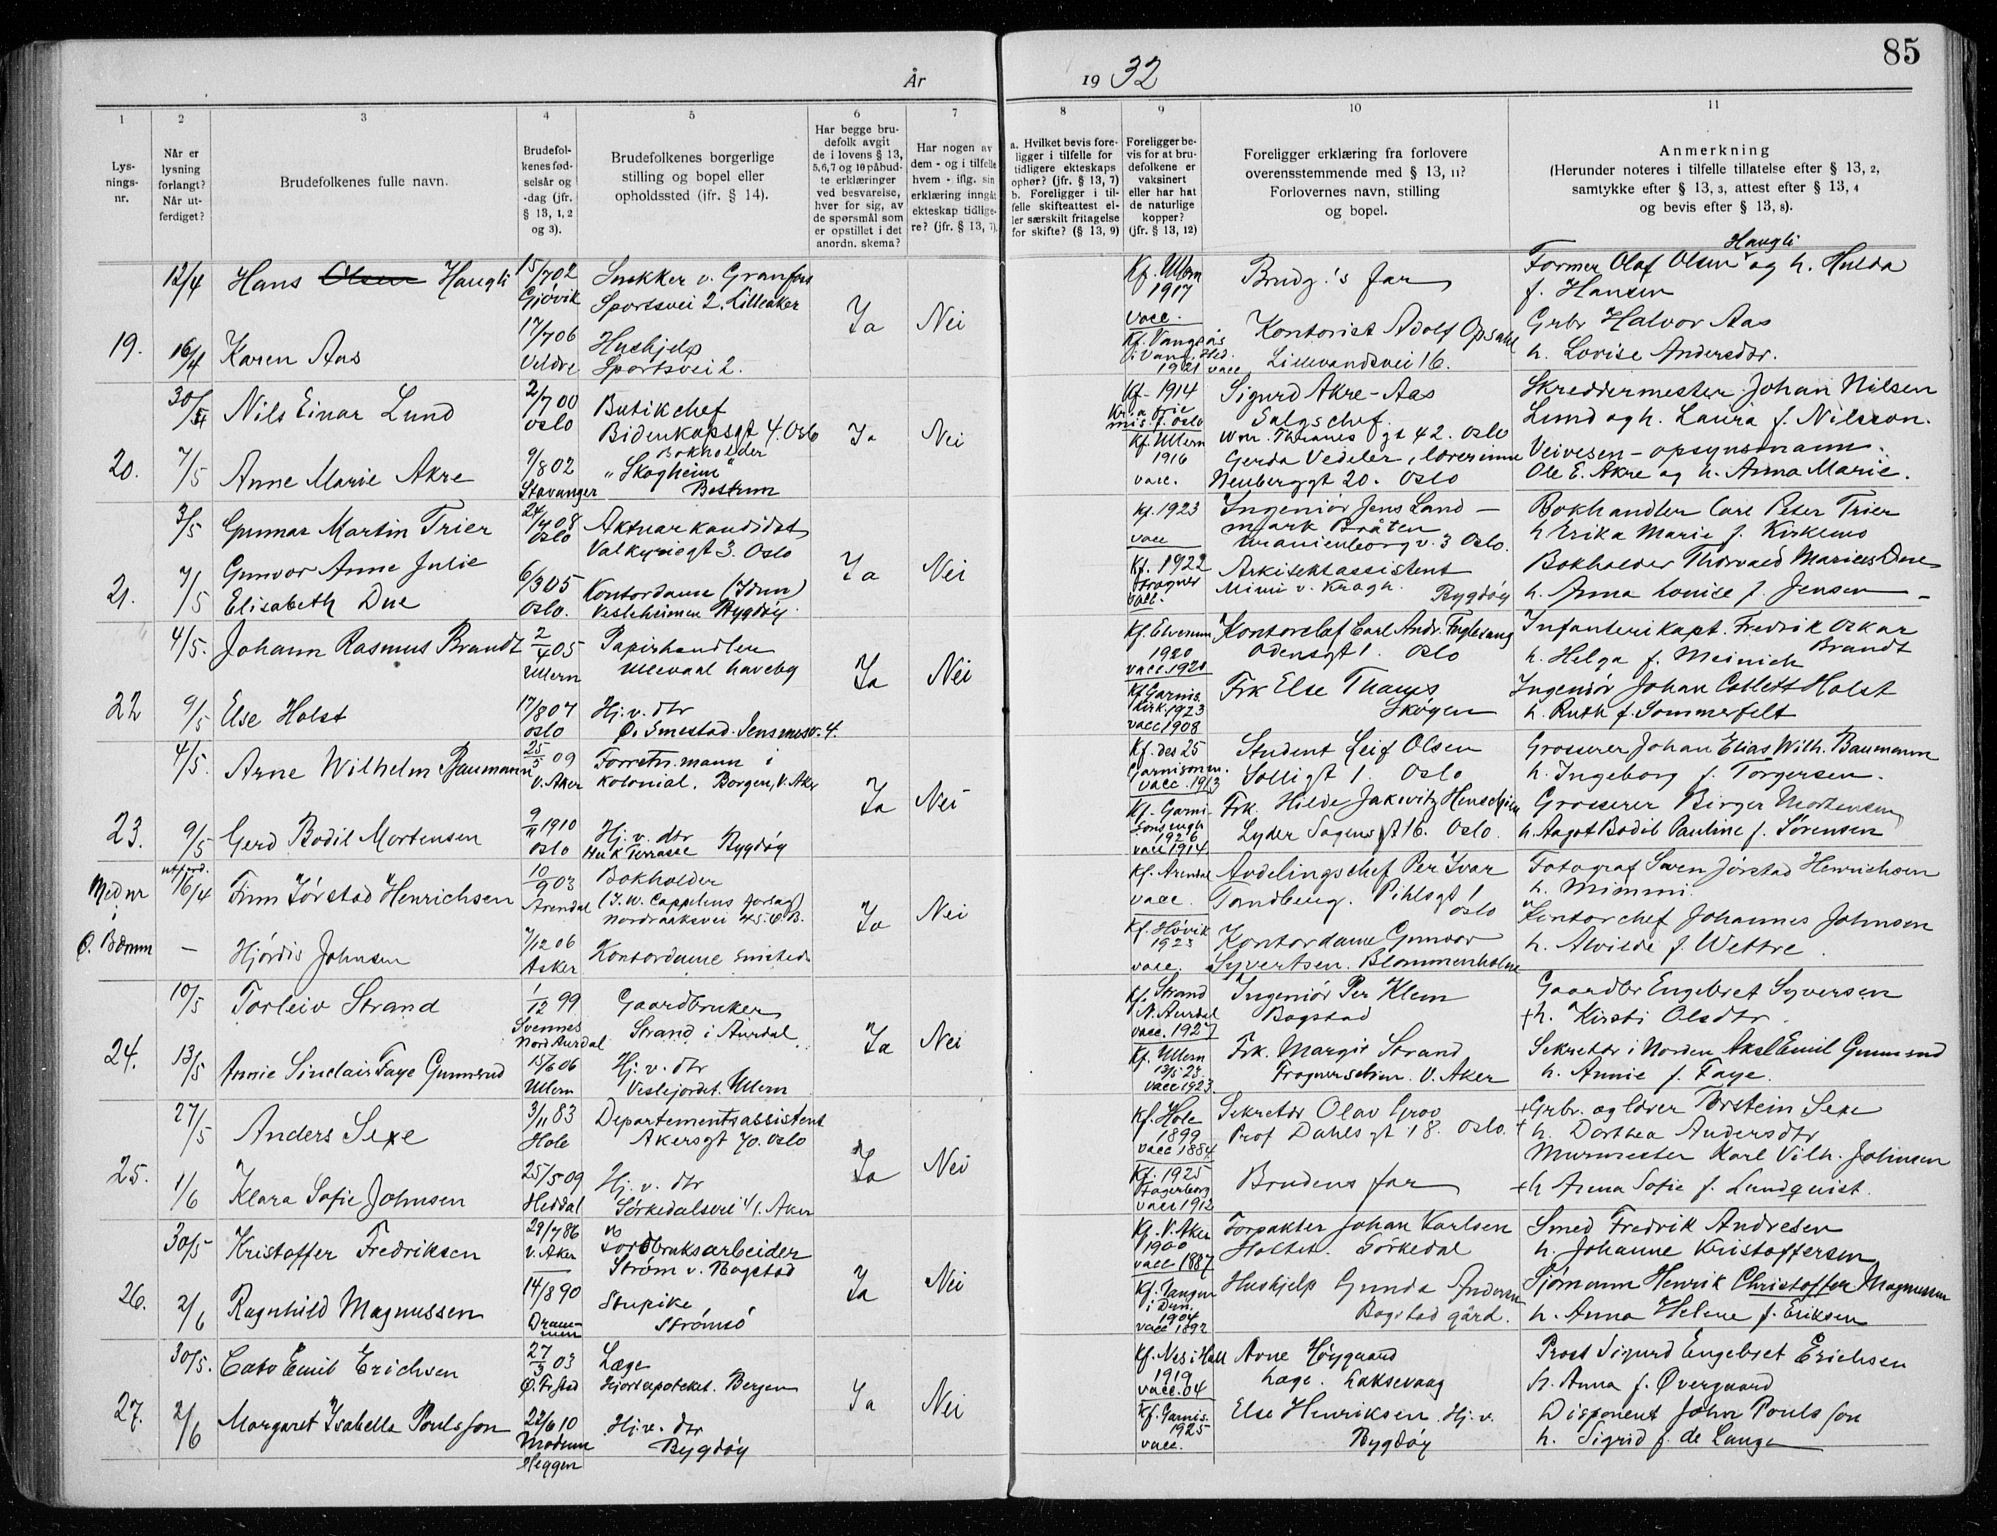 85
År 19 32
1 2 3 4 5 6 7 8 9 10 11
Lys-
nings-
nr.
Når er
lysning
forlangt?
Når ut-
ferdiget?
Brudefolkenes fulle navn.
Brudefol-
kenes fød-
selsår og
-dag (jfr.
§ 13, 1, 2
og 3).
Brudefolkenes borgerlige
stilling og bopel eller
opholdssted (ifr. § 14).
Har begge bru-
defolk avgit
de i lovens § 13,
5,6,7 og 10 påbud-
te erklæringer
ved besvarelse,
hver for sig, av
de spørsmål som
er opstillet i det
anordn. skema?
Har nogen av
dem - og i tilfelle
hvem - iflg. sin
erklæring inngåt
ekteskap tidlige-
re? (jfr. § 13, 7).
a. Hvilket bevis fore-
ligger i tilfelle for
tidligere ekteskaps
ophør? (jfr. § 13, 7)
b. Foreligger i til-
felle skifteattest el-
ler særskilt fritagelse
for skifte? (§ 13, 9)
Foreligger be-
vis for at bru-
defolkene er
vaksinert
eller har hat
de naturlige
kopper?
(jfr. § 13, 12)
Foreligger erklæring fra forlovere
overensstemmende med § 13, 11?
Forlovernes navn, stilling
og bopel.
Anmerkning
(Herunder noteres i tilfelle tillatelse efter § 13, 2,
samtykke efter § 13, 3, attest efter § 13, 4
og bevis efter § 13, 8).
12/4 Hans Olsen Haugli
15/7 02
Gjøvik
Snekker v. Granfoss
Sportsvei 2. Lilleaker
Ja Nei
Kf. Ullern
1917
vacc.
Brudg.'s far
Haugli
Former Olaf Olsen og h. Hulda
f. Hansen
19. 16/4 Karen Aas
17/7 06
Veldre
Hushjelp
Sportsvei 2.
Kf. Vangsås
i Vang, Hed.
1921 vacc
Kontorist Adolf Opsahl
Lillevandsvei 16.
Grbr Halvor Aas
h. Lovise Andersdtr.
30/4 Nils Einar Lund
2/7 00
Oslo
Butikchef
Bidenkapsgt 4. Oslo
Ja Nei
Kf. 1914
Sigurd Akre-Aas
Salgschef.
Wm. Thranes gt 42. Oslo
Skreddermester Johan Nilsen
Lund og h. Laura f. Nilsson.
20. 7/5 Anne Marie Akre
9/8 02
Stavanger
Bokholder
"Skogheim"
Bestum
Kf. Ullern
1916
vacc.
Gerda Vedeler, lærerinne
Neuberggt 20. Oslo
Veivesen-opsynsmann
Ole E. Akre og h. Anna Marie.
3/5 Gunnar Martin Trier
24/7 08
Oslo
Aktuarkandidat
Valkyriegt 3. Oslo
Ja Nei
Kf. 1923
vacc
Ingeniør Jens Land-
mark Bråten
Uranienborg v. 3 Oslo.
Bokhandler Carl Peter Trier
h Erika Marie f. Kirklens
21. 7/5 Gunvor Anne Julie
Elisabeth Due
6/3 05
Oslo.
Kontordame (Idun)
Vesleheimen Bygdøy.
Kf. 1922
Frogner
vacc.
Arkitektassistent
Mimi v. Kragh. Bygdøy
Bokholder Thorvald Marius Due
h. Anna Louise f. Jensen
4/5. Johann Rasmus Brandt
2/4 05
Ullern
Papirhandler
Ullevaal haveby
Ja Nei
Kf. Elverum
1920
vacc. 1920
Kontorchef Carl Andr. Fuglesang
Odensgt 1. Oslo
Infanterikapt. Fredrik Oskar
Brandt
h. Helga f. Meinich
22 9/5 Else Holst
17/8 07
Oslo
Hj. v. dtr
Ø. Smestad. Jensenesv. 4.
Kf. Garnis.
kirk. 1923
vacc 1908
Frk Else Thams
Skøyen
Ingeniør Johan Collett Holst
h. Ruth f. Sommerfelt
4/5. Arne Wilhelm Baumann
25/5 09
V. Aker
Forretn.mann i
kolonial. Borgen, V. Aker
Ja Nei
Kf. des 25
Garnisonen.
vacc. 1913
Student Leif Olsen
Solligt 1. Oslo
Grosserer Johan Elias Wilh. Baumann
h. Ingeborg f. Torgersen.
23. 9/5 Gerd Bodil Mortensen
9/11 1910
Oslo
Hj. v. dtr
Huk Terrasse Bygdøy
Kf. Garni-
sonsmgh
1926
vacc 1914
Frk. Hilde Jakwitz Henschien
Lyder Sagens gt 16. Oslo.
Grosserer Birger Mortensen
h. Aagot Bodil Pauline f. Sørensen
Med nr
i
Ø. Bærum
utferd.
16/4 Finn Jørstad Henrichsen
10/9 03
Arendal
Bokholder
(J. W. Cappelens forlag)
Nordraaksvei 45. Ø. B.
Ja Nei
Kf. Arendal
vacc.
Avdelingschef Per Ivar
Tandberg. Pihlsgt 1
Oslo
Fotograf Sven Jørstad Henrichsen
h. Mimmi.
— Hjørdis Johnsen
7/12 06
Asker
Kontordame smsteds
Kf. Høvik
1923
vacc.
Kontordame Gunvor
Syvertsen. Blommenholm
Kontorchef Johannes Johnsen
h. Alvilde f. Wettre.
10/5 Torleiv Strand
1/12 99
Svennes
Nord Aurdal
Gaardbruker
Strand i Aurdal
Ja Nei
Kf. Strand
N. Aurdal
vacc. 1927
Ingeniør Per Klem
Bogstad
Gaardbr Engebret Syversen
+ h. Kirsti Olsdtr.
24. 13/5 Annie Sinclair Faye Gunnerud
15/6 06
Ullern
Hj. v. dtr
Veslejordet. Ullern
Kf. Ullern
13/5 23
vacc 1923
Frk. Margit Strand
Frognerseteren. V. Aker
Sekretær i Norden Aksel Emil Gunnerud
h. Annie f. Faye.
27/5 Anders Sexe
3/11 83
Hole
Departementsassistent
Akersgt 70. Oslo
Ja Nei
Kf. Hole
1899
vacc 1884
Sekretær Olav Grov
Prof Dahls gt 18. Oslo.
+ Grbr. og lærer Torstein Sexe
+ h. Dorthea Andersdtr
25. 1/6 Klara Sofie Johnsen
25/5 09
Heddal
Hj. v. dtr
Sørkedalsvei 41. Aker
Kf. 1925
Fagerborg
vacc 1912
Brudens far
Murmester Karl Vilh. Johnsen
+ h Anna Sofie f. Lundquist.
30/5 Kristoffer Fredriksen
29/7 86
V. Aker
Jordbruksarbeider
Strøm v. Bogstad
Ja Nei
Kf. V. Aker
1900
vacc 1887
Forpakter Johan Karlsen
Holtet. Sørkedal
Smed Fredrik Andresen
h. Johanne Kristoffersen
26. 2/6 Ragnhild Magnussen
14/8 90
Dram-
men
Stupike
Strømsø
Kf. Tangen
i Drm.
1904
vacc 1892
Hushjelp Gunda Andersen
Bogstad gård.
Sjømann Henrik Christoffer Magnussen
h. Anna Helene f. Eriksen
30/5. Cato Emil Erichsen
27/3 03
Ø. Fistad
Læge
Hjorteapoteket. Bergen
Ja Nei
Kf. Nes i Hall
1919
vacc. 04
Arne Høygaard
Læge. Laksevaag
Prost Sigurd Engebret Erichsen
h. Anna f. Øvergaard
27. 2/6 Margaret Isabella Poulsson
22/6 10
Modum
Heggen
Hj. v. dtr
Bygdøy
Kf. Garnis.
1925
vacc.
Else Henriksen. Hj. v.
Bygdøy
Disponent John Poulsson
h. Sigrid f. de Lange